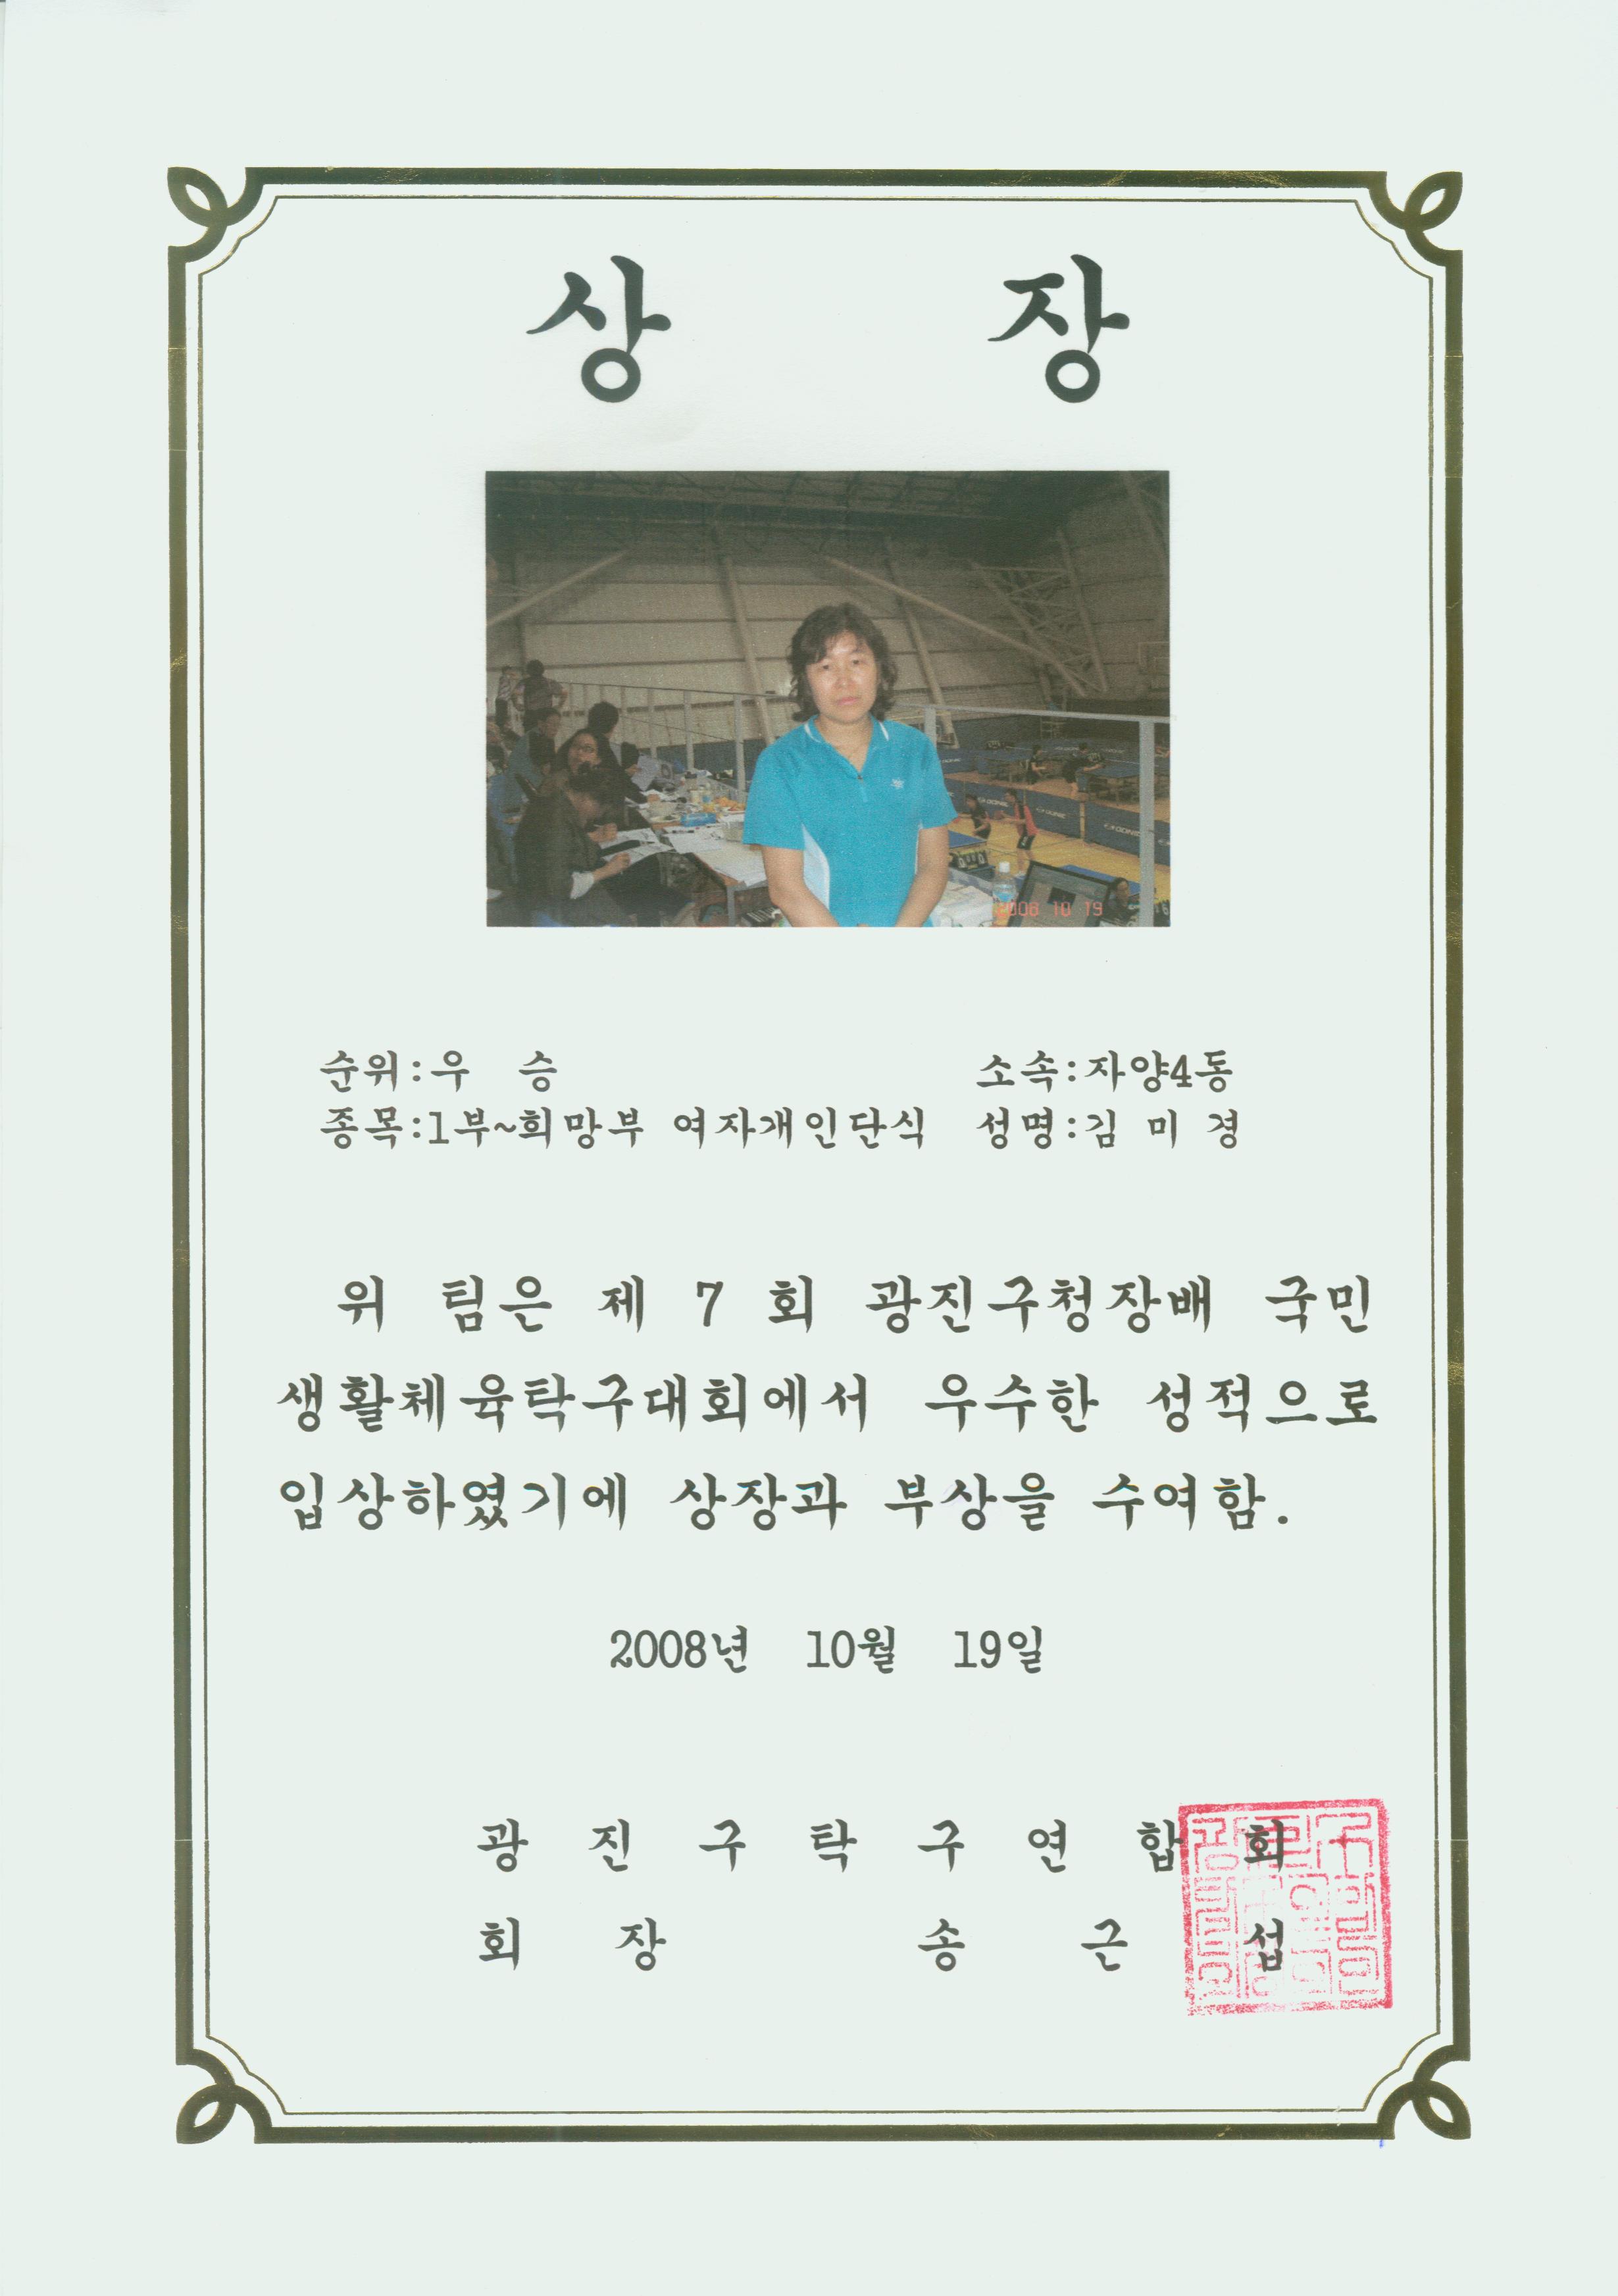 상 장
DONIC
DONIC
2008 10 19
순위:우 승 소속:자양4동
종목:1부~희망부 여자개인단식 성명:김 미 경
위 팀은 제 7 회 광진구청장배 국민
생활체육탁구대회에서 우수한 성적으로
입상하였기에 상장과 부상을 수여함.
2008년 10월 19일
광 진 구 탁 구 연 합 회
회 장 송 근 섭